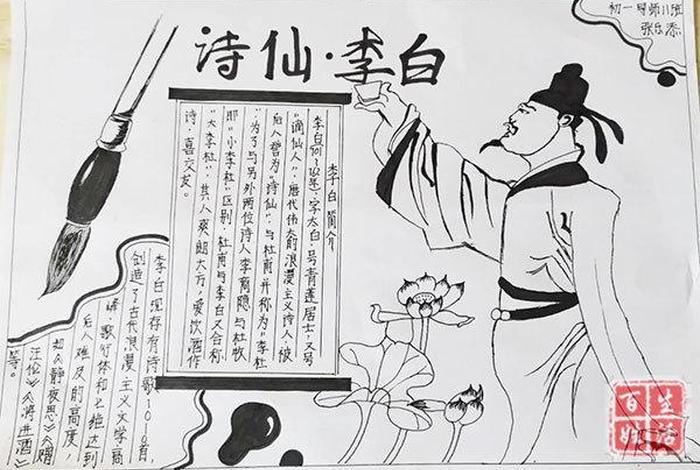 诗仙·李白
李白简介
李白(701—762年),字太白,号青莲居士,又号
“谪仙人”,唐代伟大的浪漫主义诗人,被
后人誉为“诗仙”,与杜甫并称为“李杜
”,为了与另外两位诗人李商隐与杜牧
即“小李杜”区别,杜甫与李白又合称
“大李杜”。其人爽朗大方,爱饮酒作
诗,喜交友。
李白现存有诗歌1010首,
创造了古代浪漫主义文学高
峰,歌行体和七绝达到
后人难及的高度,
如《静夜思》《赠
汪伦》《将进酒》
等。
张乐添
生活
百